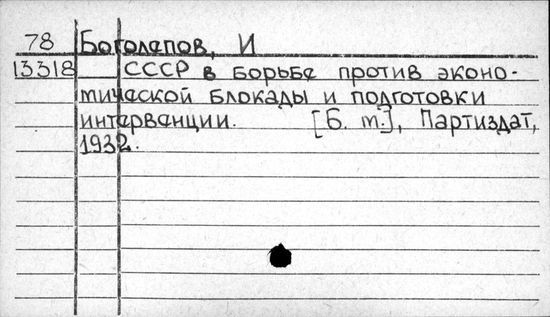 78 Боголепов, И
13318 СССР в борьбе против эконо-
мической блокады и подготовки
интервенции. [Б. м.], Партиздат,
1932.